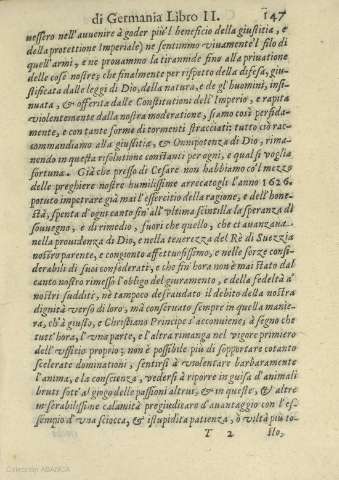 di Germania Libro II. 147
uessero nell'auuenire à goder più'l beneficio della giustitia, e
della protettione Imperiale) ne sentimmo viuamente'l filo di
quell'armi, e ne prouammo la tirannide fino alla priuatione
delle cose nostre; che finalmente per rispetto della difesa, giu-
stificata dalle leggi di Dio, della natura, e de gl'huomini, insi-
nuata, & offerita dalle Constitutioni dell'Imperio, e rapita
violentemente dalla nostra moderatione, siamo così perfida-
mente, e con tante forme di tormenti stracciati: tutto ciò rac-
commandiamo alla giustitia, & Onnipotenza di Dio, rima-
nendo in questa risolutione constanti per ogni, e qual si voglia
fortuna. Già che presso di Cesare non habbiamo co'l mezzo
delle preghiere nostre humilissime arrecategli l'anno 1626.
potuto impetrare già mai l'essercitio della ragione, e dell'hone-
stà, spenta d'ogni canto fin'all'vltima scintilla la speranza di
souuegno, e di rimedio, fuori che quello, che ci auanzana
nella prouidenza di Dio, e nella tenerezza del Rè di Suezzia
nostro parente, e congionto affettuosissimo, e nelle forze consi-
derabili di suoi confederati, e che fin hora non è mai stato dal
canto nostro rimesso l'obligo del giuramento, e della fedeltà a'
nostri sudditi, nè tampoco defraudato il debito della nostra
dignità verso di loro, mà conseruato sempre in quella manie-
ra, ch'à giusto, e Christiano Principe s'acconuiene; à segno che
tutt'hora, l'vna parte, e l'altra rimanga nel vigore primiero
dell'vfficio proprio; non è possibile più di sopportare cotanto
scelerate dominationi, sentirsi à violentare barbaramente
l'anima, e la conscienza, vedersi à riporre in guisa d'animali
bruti sott'al giogo delle passioni altrui, & in queste, & altre
miserabilissime calamità pregiudicare d'auantaggio con l'es-
sempio d'vna sciocca, & istupidita patienza, ò viltà più to-
T 2 sto,
Colección ABANCA